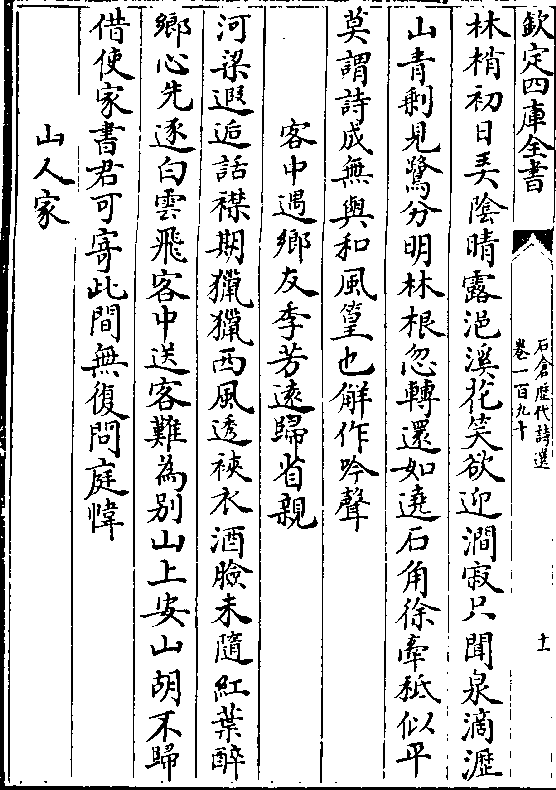 欽定四庫全書
石倉歴代詩選
卷一百九十
十一
林梢初日弄陰晴露浥溪花笑欲迎澗寂只聞泉滴瀝
山青剩見鷺分明林根忽轉還如遶石角徐牽秪似平
莫謂詩成無與和風篁也解作吟聲
客中遇鄉友季芳遠歸省親
河梁遐逅話襟期獵獵西風透裌衣酒臉未隨紅葉醉
鄉心先逐白雲飛客中送客難為别山上安山胡不歸
借使家書君可寄此間無復問庭幃
山人家